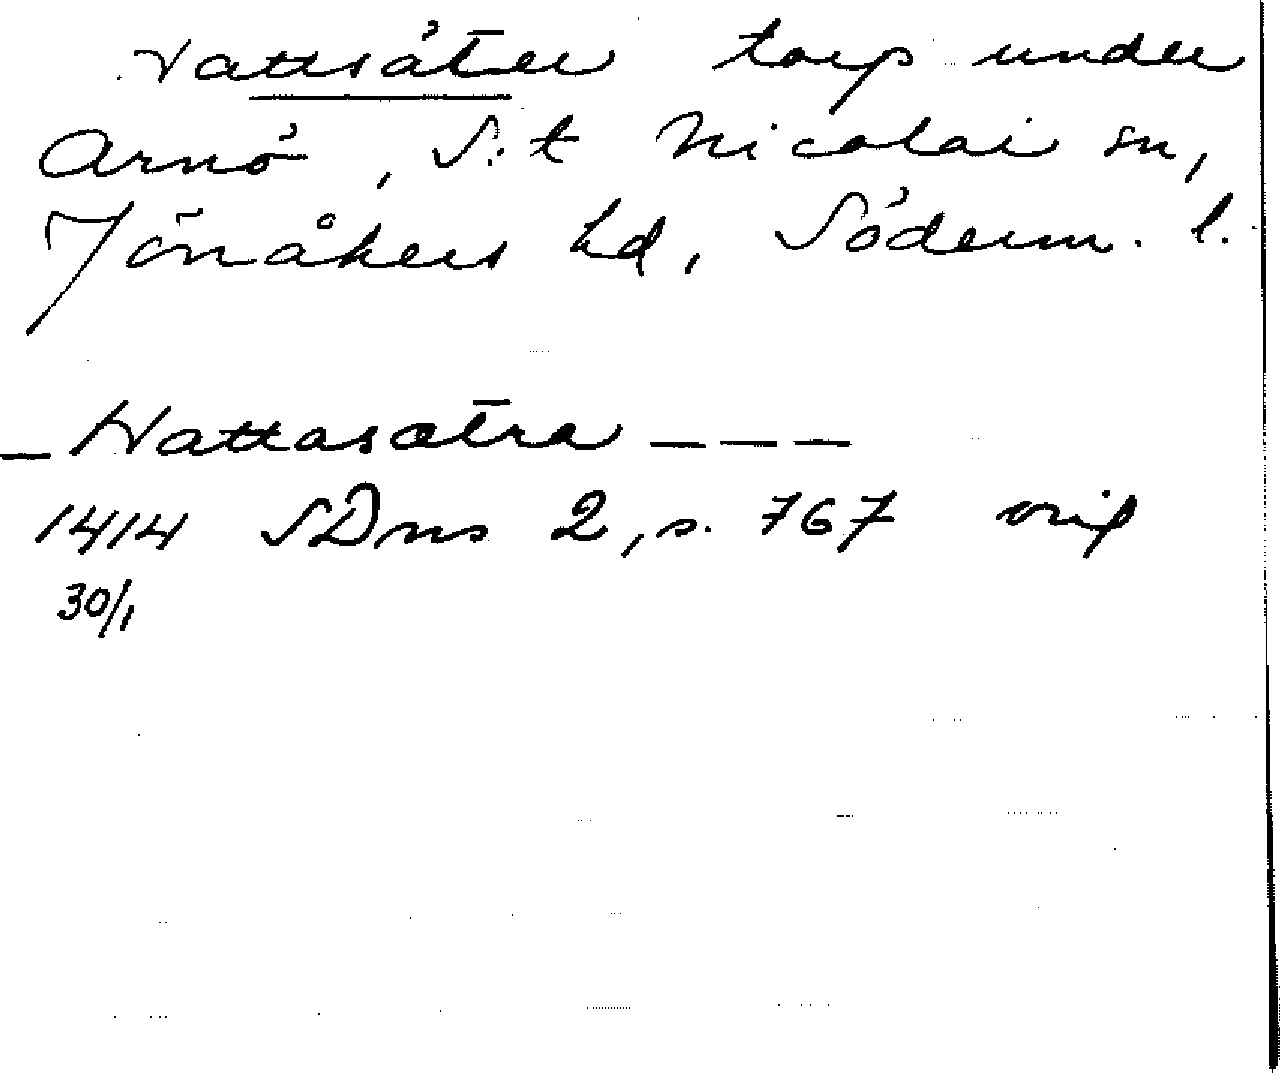 Vattsäter torp under
Arnö, S:t Nicolai sn,
Jönåkers hd, Söderm. l.
_ Wattasætra _ _ _
1414 SDns 2, s. 767 orig
30/1